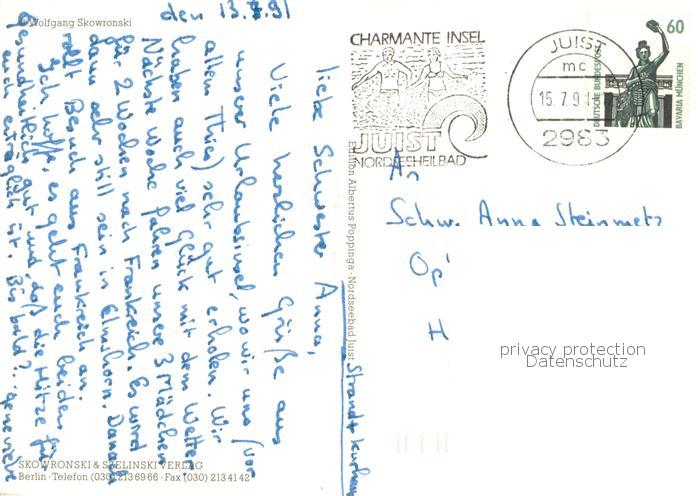 den 13.7.91
liebe Schwester Anna,
Viele herzlichen Grüße aus
unser Urlaubsinsel, wo wir uns (vor
allem Thies) sehr gut erholen. Wir
haben auch viel Glück mit dem Wetter.
Nächste Woche fahren unsere 3 Mädchen
für 2 Wochen nach Frankreich. Es wird
dann sehr still sein in Elmshorn. Danach
rollt Besuch aus Frankreich an.
Ich hoffe, es geht euch beiden
gesundheitlich gut und daß die Hitze für
euch erträglich ist. Bis bald?..
Strandt Kurhaus
© Wolfgang Skowronski
SKOWRONSKI & STELINSKI VERLAG
Berlin · Telefon (030) 213 69 66 · Fax (030) 213 41 42
Edition Albertus Poppinga · Nordseebad Juist
CHARMANTE INSEL
JUIST
NORDSEEHEILBAD
JUIST
mc
15.7.91
2983
60
DEUTSCHE BUNDESPOST
BAVARIA MÜNCHEN
An
Schw. Anna Steinmetz
Op
H
privacy protection
Datenschutz